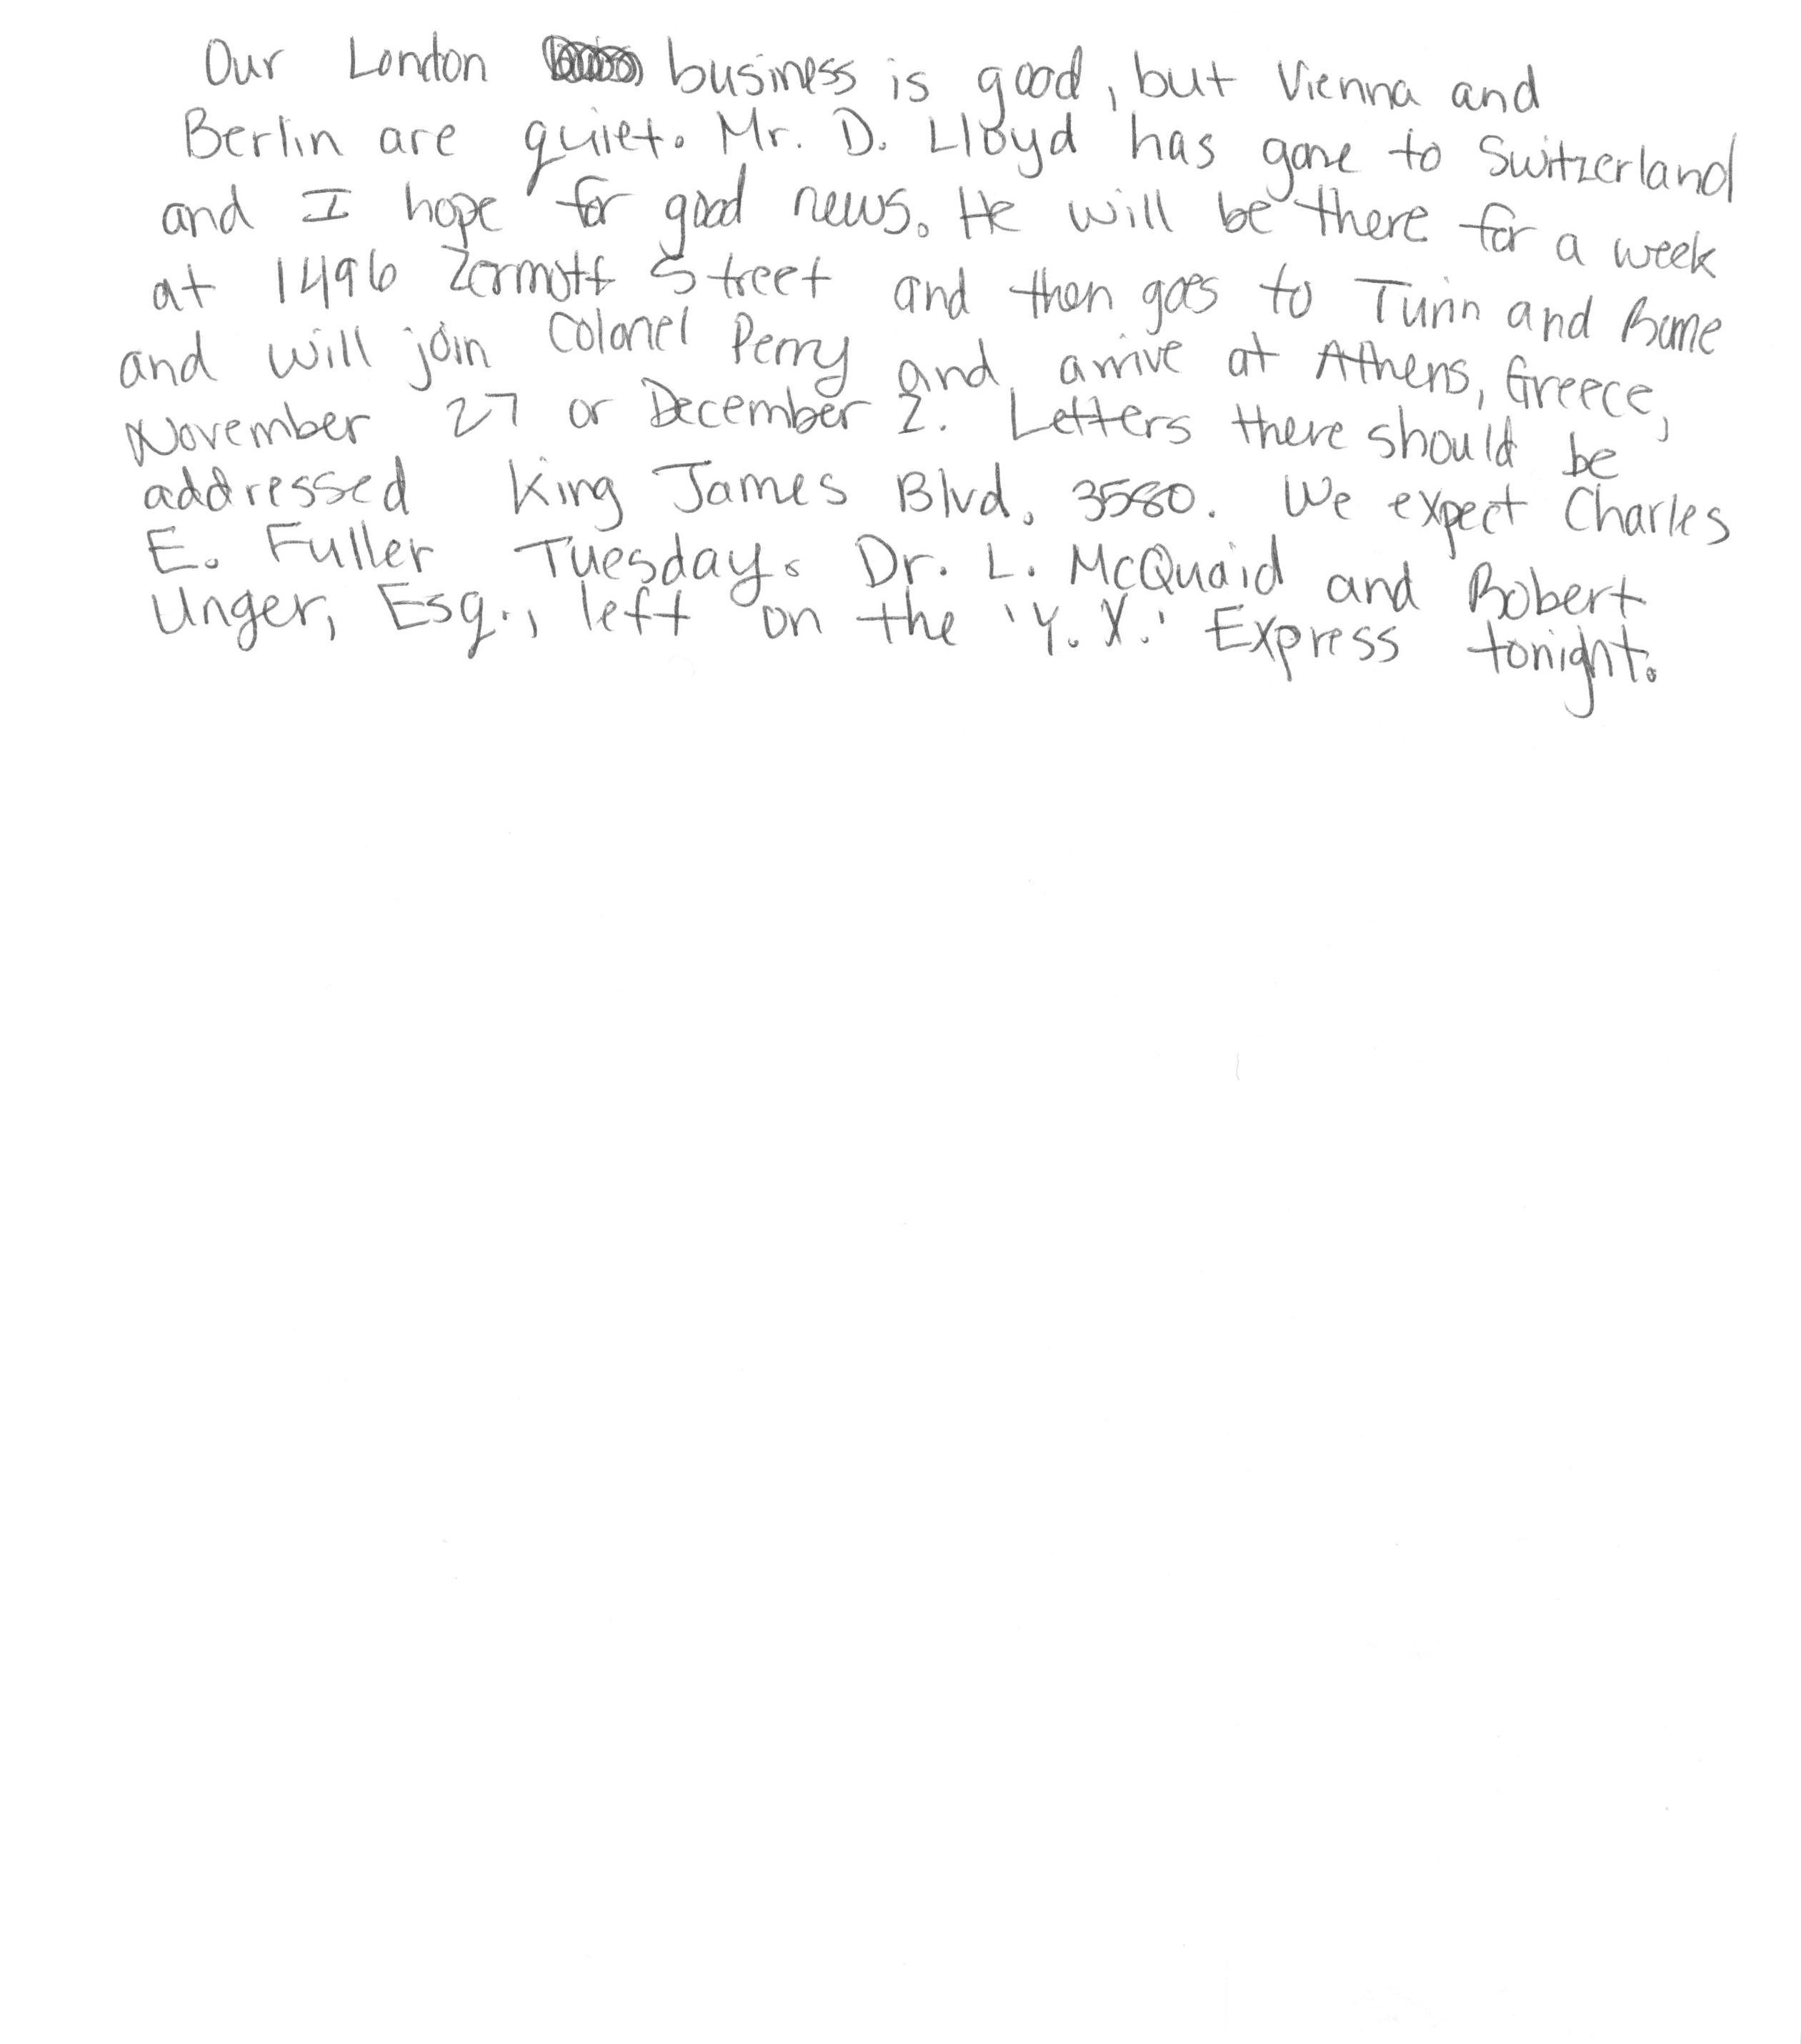 Our London business is good, but Vienna and
Berlin are quiet. Mr. D. Lloyd has gone to Switzerland
and I hope for good news. He will be there for a week
at 1496 Zermott Street and then goes to Turin and Rome
and will join Colonel Perry and arrive at Athens, Greece,
November 27 or December 2. Letters there should be
addressed King James Blvd. 3580. We expect Charles
E. Fuller Tuesday. Dr. L. McQuaid and Robert
Unger, Esq., left on the 'Y. X.' Express tonight.